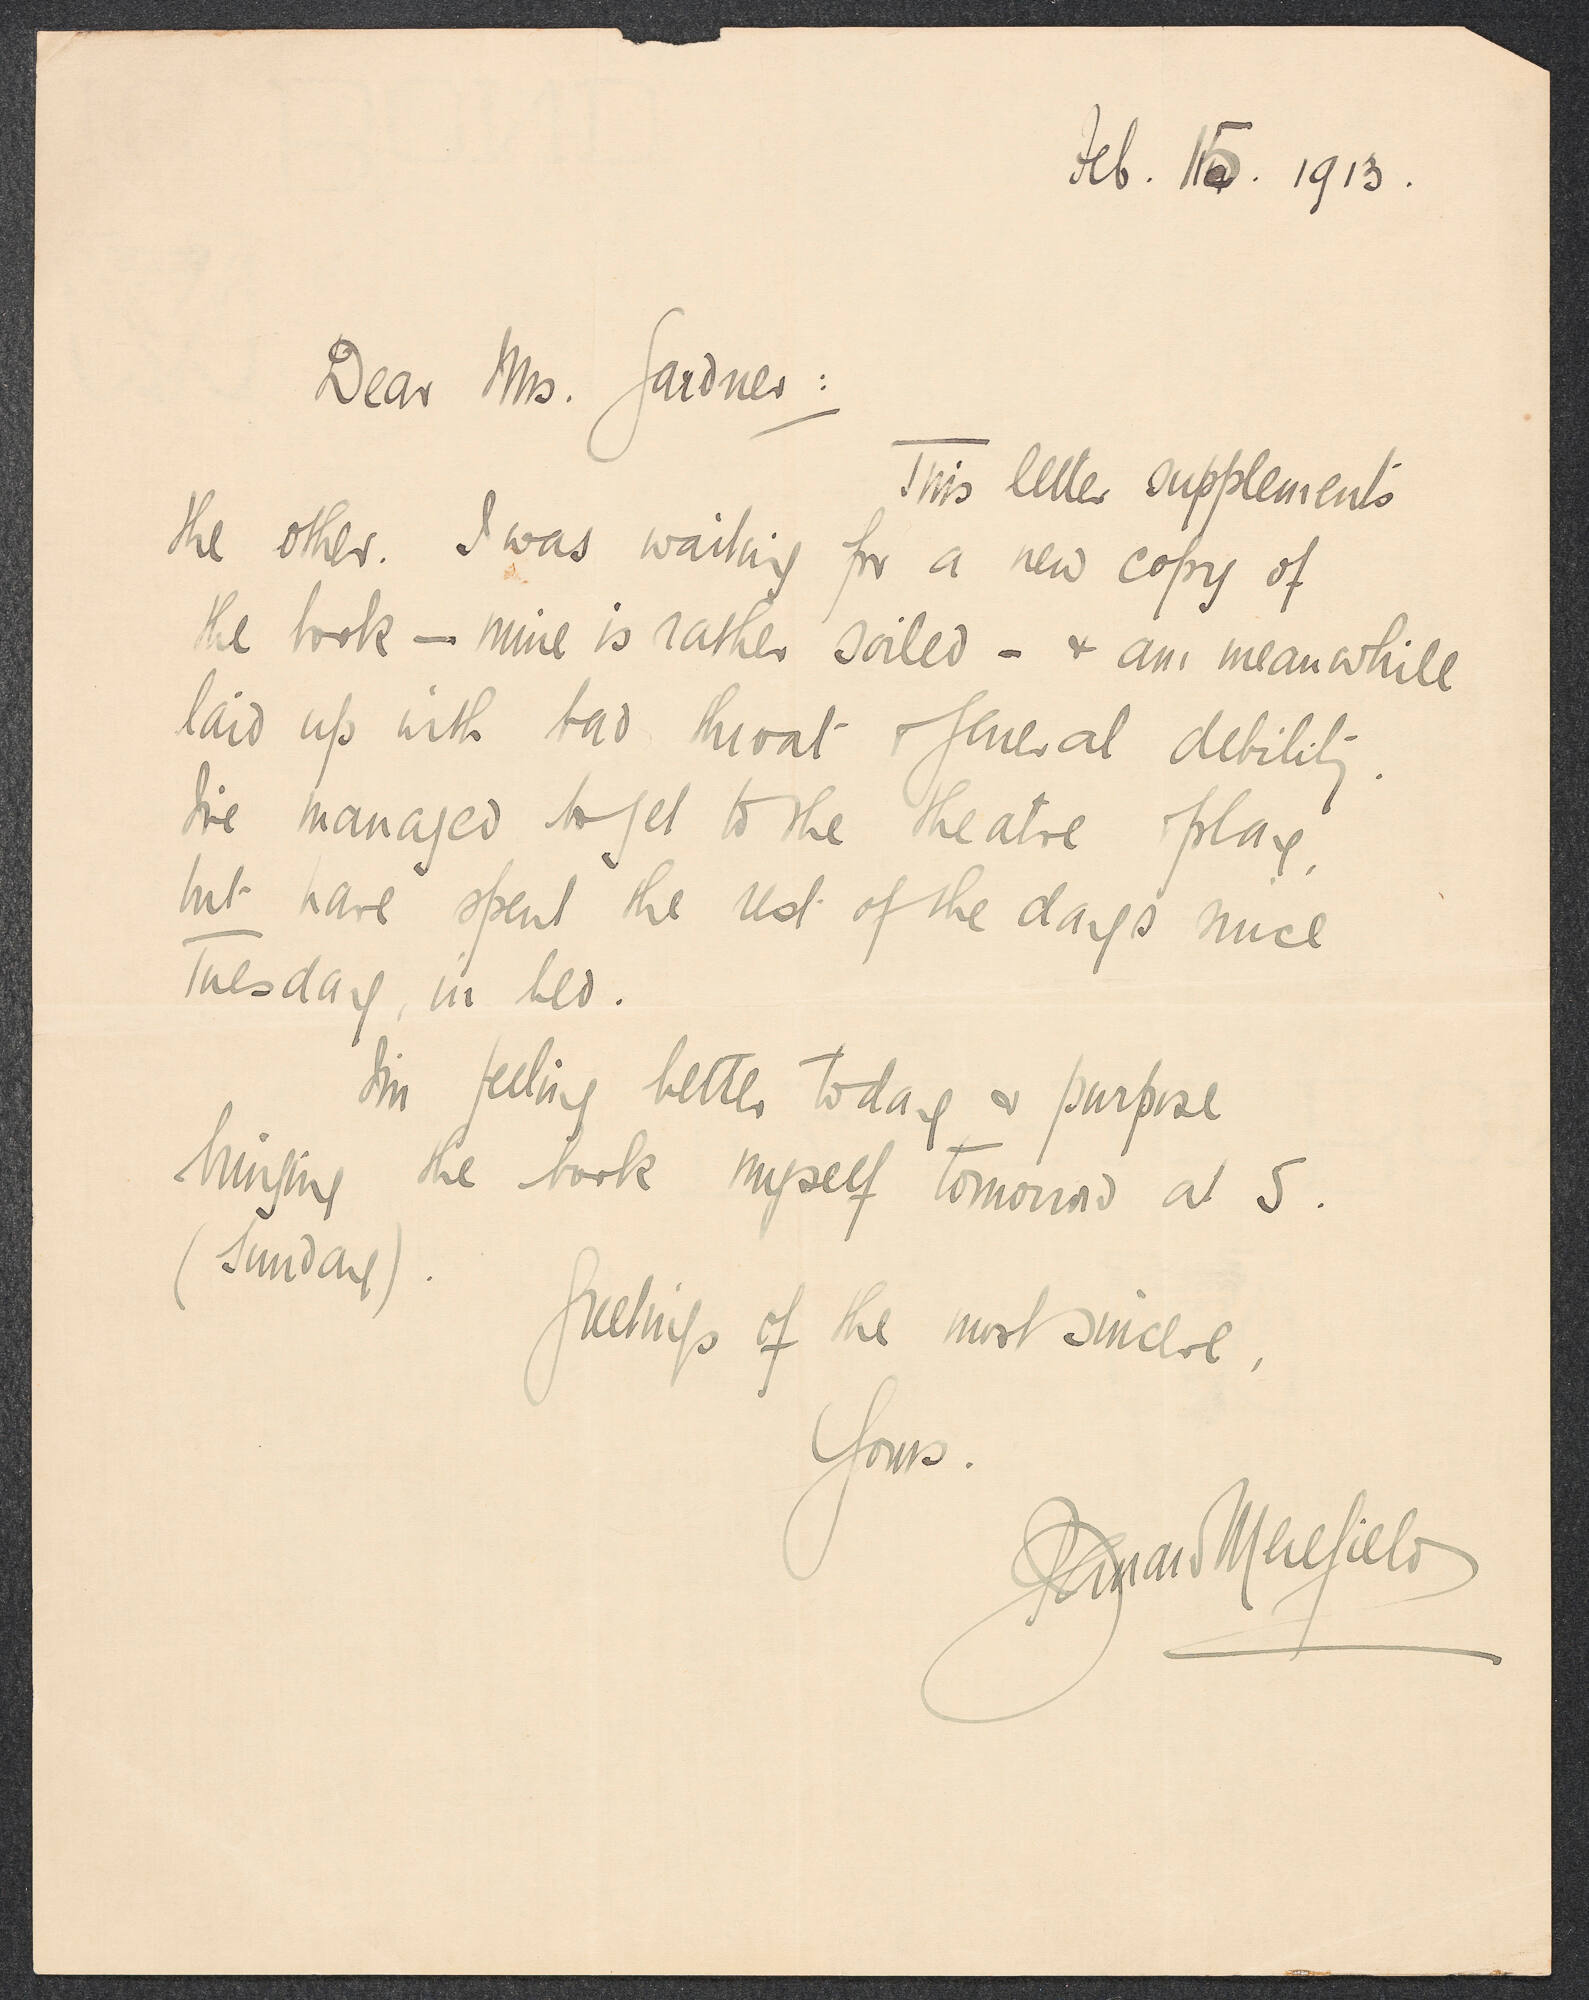 Feb. 15. 1913.
Dear Mrs. Gardner:
This letter supplements
the other. I was waiting for a new copy of
the book — mine is rather soiled – & am meanwhile
laid up with bad throat & general debility.
I've managed to get to the theatre & play,
but have spent the rest of the days since
Tuesday, in bed.
I'm feeling better today & purpose
bringing the book myself tomorrow at 5.
(Sunday).
Greetings of the most sincere,
Yours.